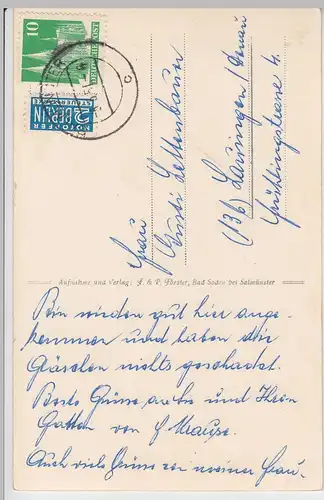 10
DEUTSCHE POST
NOTOPFER
2 BERLIN
STEUERMARKE
c
Frau
Gusti Dettenbauer
(13b) Lauingen/Donau
Frühlingstrasse 4.
Aufnahme und Verlag: F. & P. Förster, Bad Soden bei Salmünster
Bin wieder gut hier ange-
kommen und haben die
Gläschen nichts geschadet.
Beste Grüsse an Sie und Ihren
Gatten von
Auch viele Grüsse von meiner Frau-